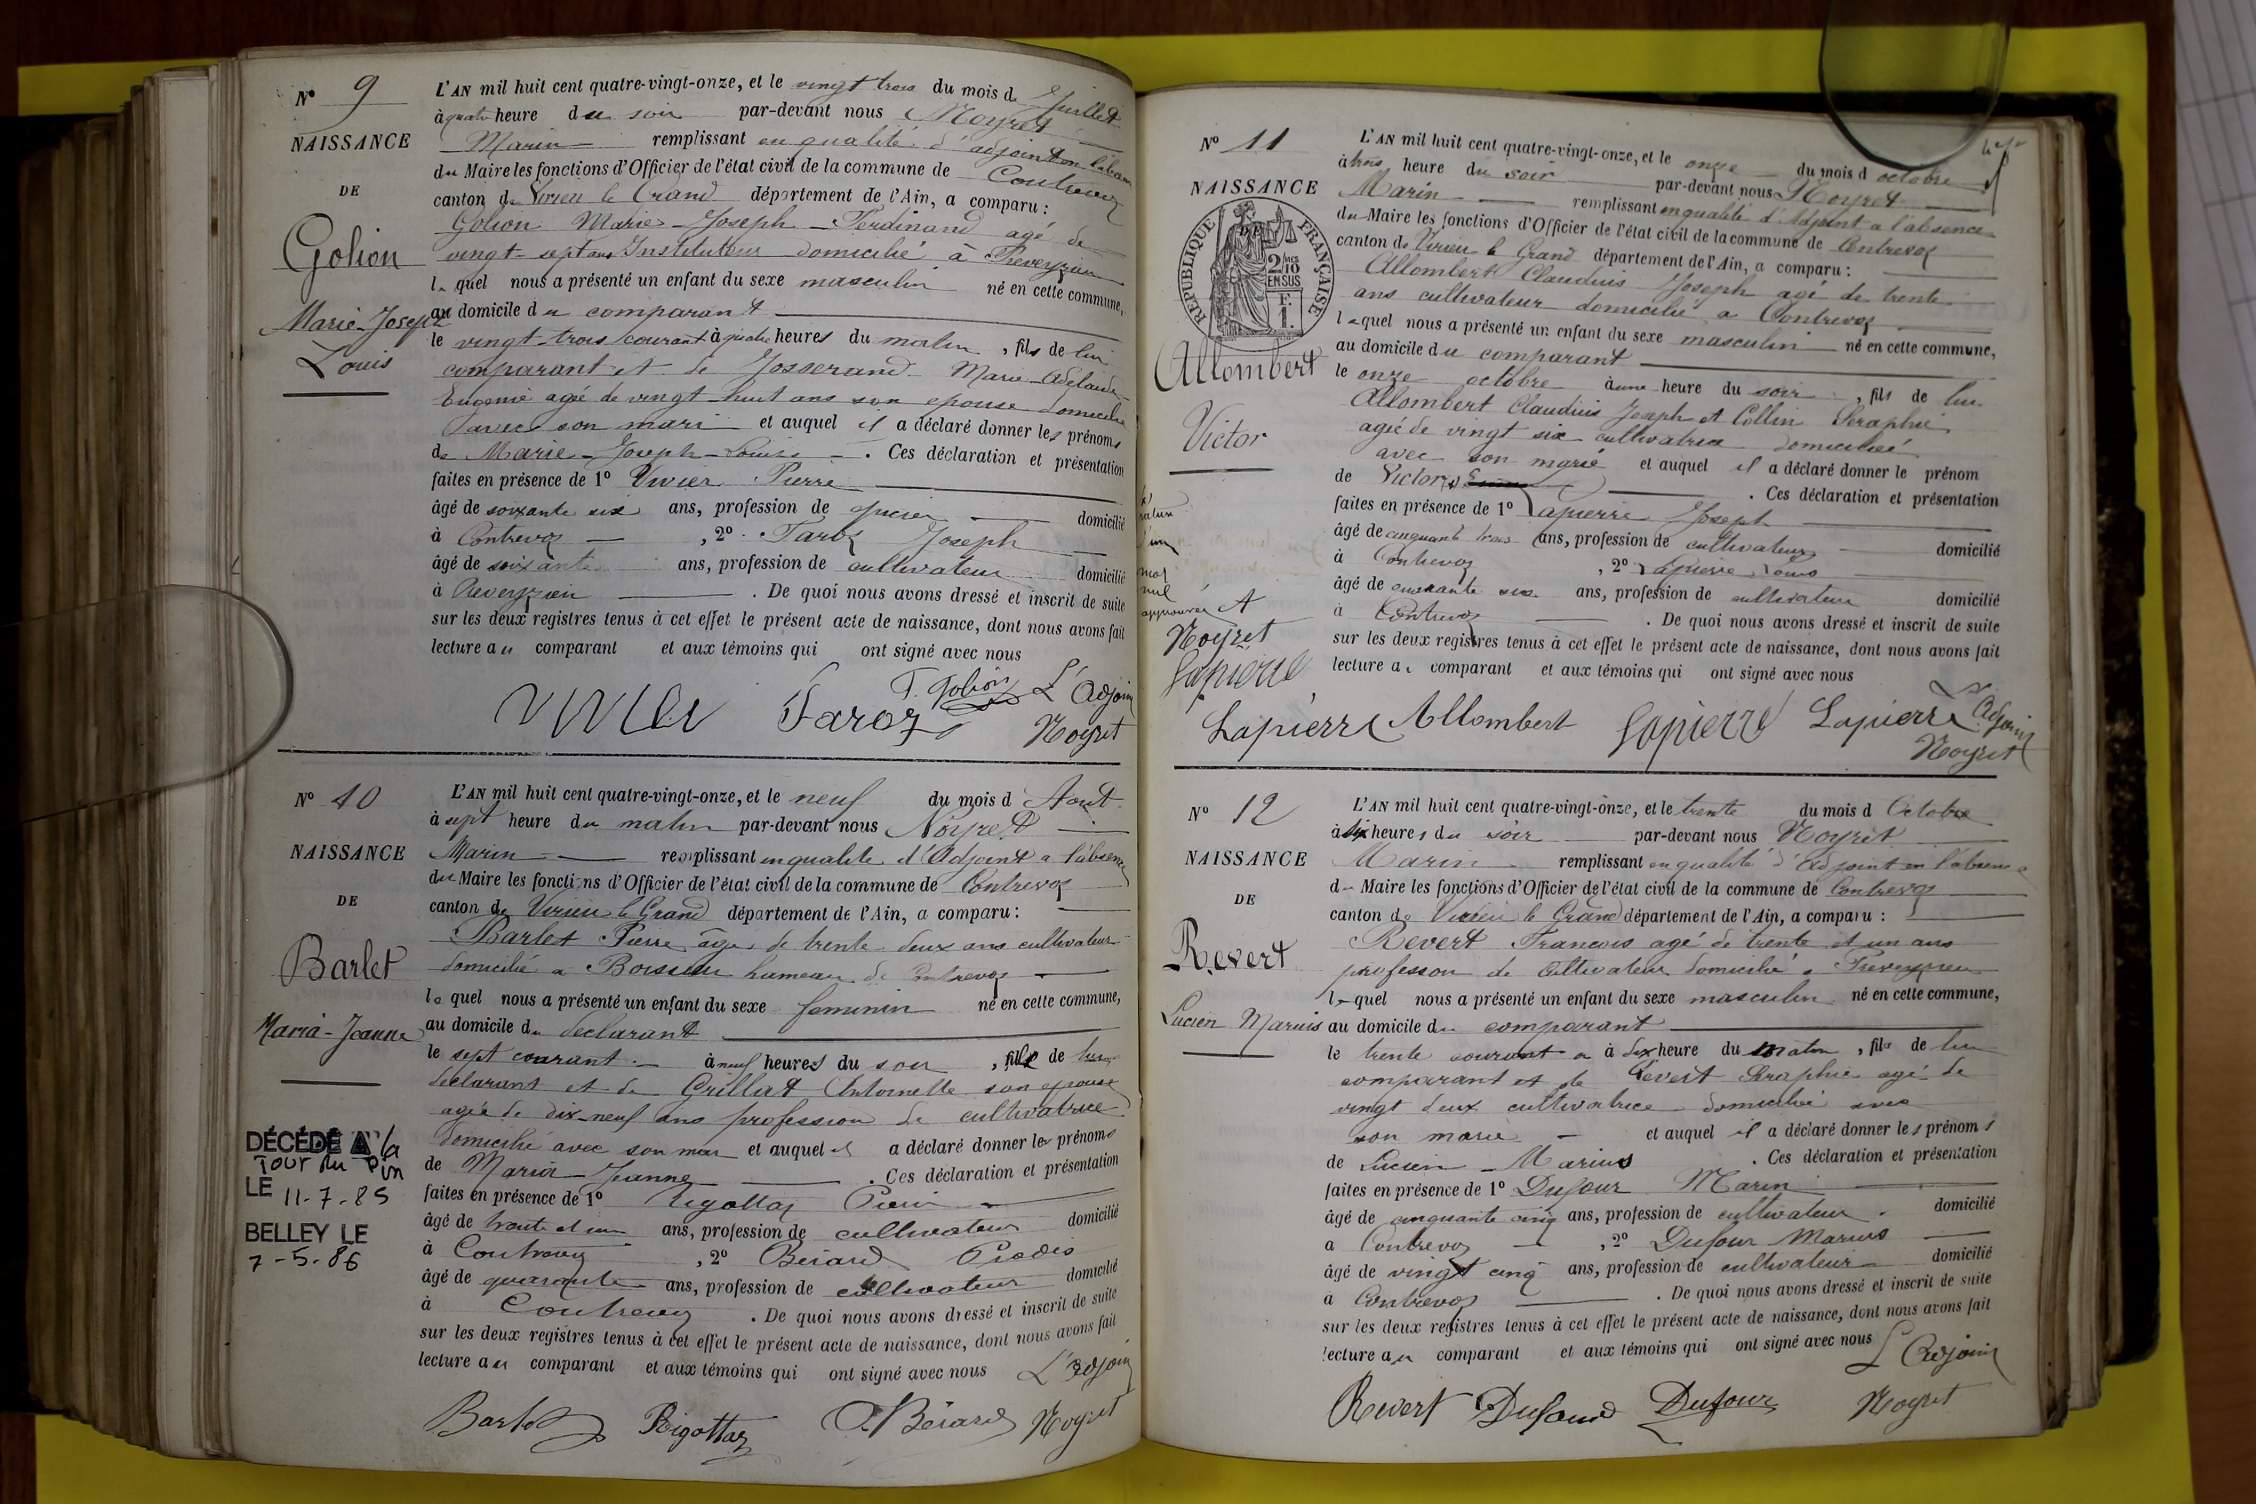 N° 9
NAISSANCE
DE
Golion
Marie-Joseph
Louis
L'AN mil huit cent quatre-vingt-onze, et le vingt trois du mois de Juillet
à quatre heure du soir par-devant nous Noyret
Marin remplissant en qualité d'adjoint en l'absence
du Maire les fonctions d'Officier de l'état civil de la commune de Contrevoz
canton de Virieu le Grand département de l'Ain, a comparu :
Golion Marie-Joseph-Ferdinand agé de
vingt-sept ans Instituteur domicilié à Preveyzieu
lequel nous a présenté un enfant du sexe masculin né en cette commune,
au domicile du comparant
le vingt-trois courant à quatre heures du matin, fils de lui
comparant et de Josserand Marie-Adelaïde-
Eugenie agée de vingt-huit ans son epouse domicilié
avec son mari et auquel il a déclaré donner les prénoms
de Marie-Joseph-Louis. Ces déclaration et présentation
faites en présence de 1° Vivier Pierre
âgé de soixante six ans, profession de epicier domicilié
à Contrevoz, 2° Faroz Joseph
âgé de soixante ans, profession de cultivateur domicilié
à Preveyzieu. De quoi nous avons dressé et inscrit de suite
sur les deux registres tenus à cet effet le présent acte de naissance, dont nous avons fait
lecture au comparant et aux témoins qui ont signé avec nous
Vivier Faroz F. Golion L'Adjoint
Noyret
N° 10
NAISSANCE
DE
Barlet
Maria-Jeanne
DÉCÉDÉ A la
Tour du Pin
LE 11-7-85
BELLEY LE
7-5-86
L'AN mil huit cent quatre-vingt-onze, et le neuf du mois d Aout
à sept heure du matin par-devant nous Noyret
Marin remplissant en qualité d'Adjoint a l'absence
du Maire les fonctions d'Officier de l'état civil de la commune de Contrevoz
canton de Virieu le Grand département de l'Ain, a comparu :
Barlet Pierre âgé de trente-deux ans cultivateur
domicilié a Boissieu hameau de Contrevoz
lequel nous a présenté un enfant du sexe feminin né en cette commune,
au domicile du declarant
le sept courant à neuf heures du soir, fille de lui
declarant et de Grillat Antoinette son epouse
agée de dix-neuf ans profession de cultivatrice
domicilié avec son mari et auquel il a déclaré donner les prénoms
de Maria Jeanne. Ces déclaration et présentation
faites en présence de 1° Rigottaz Pierre
âgé de trente et un ans, profession de cultivateur domicilié
à Contrevoz, 2° Bérard
âgé de quarante ans, profession de cultivateur domicilié
à Contrevoz. De quoi nous avons dressé et inscrit de suite
sur les deux registres tenus à cet effet le présent acte de naissance, dont nous avons fait
lecture au comparant et aux témoins qui ont signé avec nous L'Adjoint
Barlet Rigottaz Bérard Noyret
N° 11
NAISSANCE
RÉPUBLIQUE FRANÇAISE
2/10 EN SUS
F. 1.
Allombert
Victor
mot
nul
approuvée
Noyret
Lapierre
L'AN mil huit cent quatre-vingt-onze, et le onze du mois d octobre
à trois heure du soir par-devant nous Noyret
Marin remplissant en qualité d'Adjoint a l'absence
du Maire les fonctions d'Officier de l'état civil de la commune de Contrevoz
canton de Virieu le Grand département de l'Ain, a comparu :
Allombert Claudius Joseph agé de trente
ans cultivateur domicilié a Contrevoz
lequel nous a présenté un enfant du sexe masculin né en cette commune,
au domicile du comparant
le onze octobre à une heure du soir, fils de lui
Allombert Claudius Joseph et Collin Seraphie
agée de vingt six cultivatrice domiciliée
avec son marié et auquel il a déclaré donner le prénom
de Victor. Ces déclaration et présentation
faites en présence de 1° Lapierre Joseph
âgé de cinquante trois ans, profession de cultivateur domicilié
à Contrevoz, 2° Lapierre Louis
âgé de quarante six ans, profession de cultivateur domicilié
à Contrevoz. De quoi nous avons dressé et inscrit de suite
sur les deux registres tenus à cet effet le présent acte de naissance, dont nous avons fait
lecture au comparant et aux témoins qui ont signé avec nous
Lapierre Allombert Lapierre Lapierre L'Adjoint
Noyret
N° 12
NAISSANCE
DE
Revert
Lucien Marius
L'AN mil huit cent quatre-vingt-onze, et le trente du mois d Octobre
à six heures du soir par-devant nous Noyret
Marin remplissant en qualité d'Adjoint en l'absence
du Maire les fonctions d'Officier de l'état civil de la commune de Contrevoz
canton de Virieu le Grand département de l'Ain, a comparu :
Revert Francois agé de trente et un ans
profession de cultivateur domicilié a Preveyzieu
lequel nous a présenté un enfant du sexe masculin né en cette commune,
au domicile du comparant
le trente courant a à dix heure du matin, fils de lui
comparant et de Revert Seraphie agé de
vingt deux cultivatrice domicilié avec
son marie et auquel il a déclaré donner les prénoms
de Lucien-Marius. Ces déclaration et présentation
faites en présence de 1° Dufour Marin
âgé de cinquante cinq ans, profession de cultivateur domicilié
à Contrevoz, 2° Dufour Marius
âgé de vingt cinq ans, profession de cultivateur domicilié
à Contrevoz. De quoi nous avons dressé et inscrit de suite
sur les deux registres tenus à cet effet le présent acte de naissance, dont nous avons fait
lecture au comparant et aux témoins qui ont signé avec nous L'Adjoint
Revert Dufour Dufour Noyret